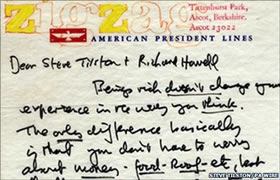 zigzag
Tittenhurst Park,
Ascot, Berkshire.
Ascot 23022
AMERICAN PRESIDENT LINES
Dear Steve Tilston + Richard Howell
Being rich doesn't change your
experience in the way you think.
The only difference basically
is that you don't have to worry
about money - food - Roof - etc, but
STEVE TILSTON / PA WIRE